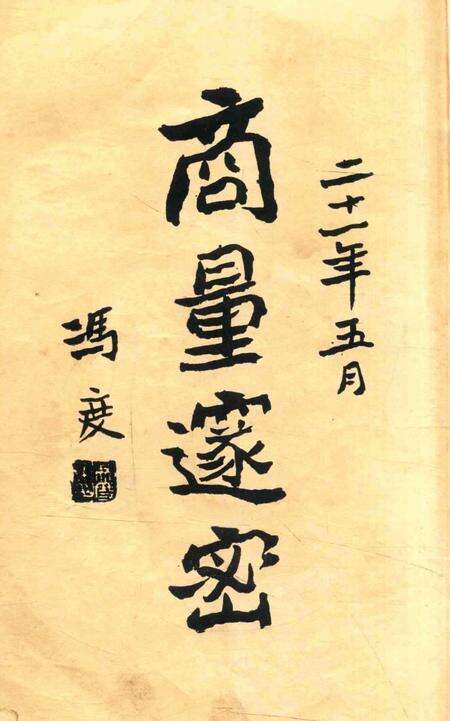 二十一年五月
商量邃密
馮度